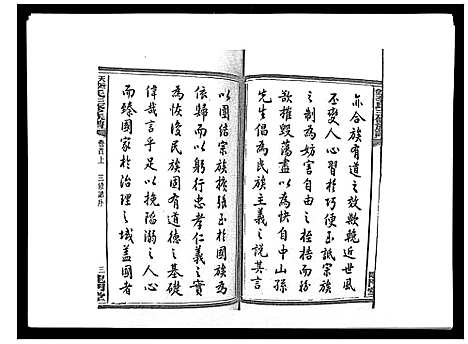 亦合族有道之效歟輓近世風
丕變人心習於巧便至詆宗族
之制為妨害自由之桎梏而紛
欲摧毀蕩盡以為快自中山孫
先生倡為民族主義之說其言
以團結宗族擴張至於國族為
依歸而以躬行忠孝仁義之實
為恢復民族固有道德之基礎
偉哉言乎足以挽陷溺之人心
而臻國家於治理之域蓋國者
氏三修族譜
卷首上
三修譜序
三